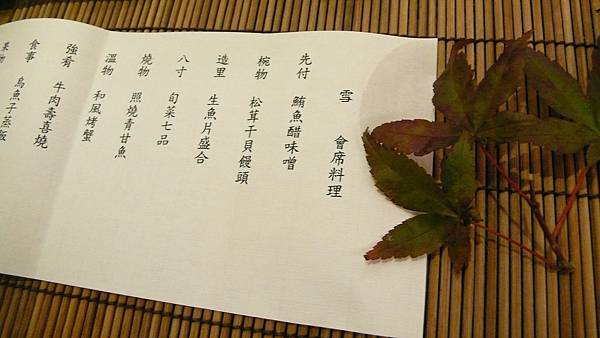 雪 會席料理
先付 鮪魚醋味噌
椀物 松茸干貝饅頭
造里 生魚片盛合
八寸 旬菜七品
燒物 照燒青甘魚
溫物 和風烤蟹
強肴 牛肉壽喜燒
食事 烏魚子蒸飯